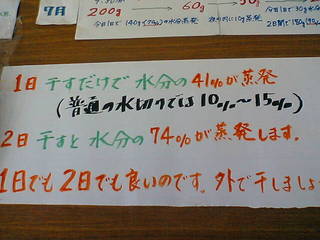 7月
200g → 60g → 50g
1日 干すだけで 水分の 41%が蒸発
(普通の水切りでは 10%～15%)
2日 干すと 水分の 74%が蒸発します。
1日でも 2日でも良いのです。外で干しましょ